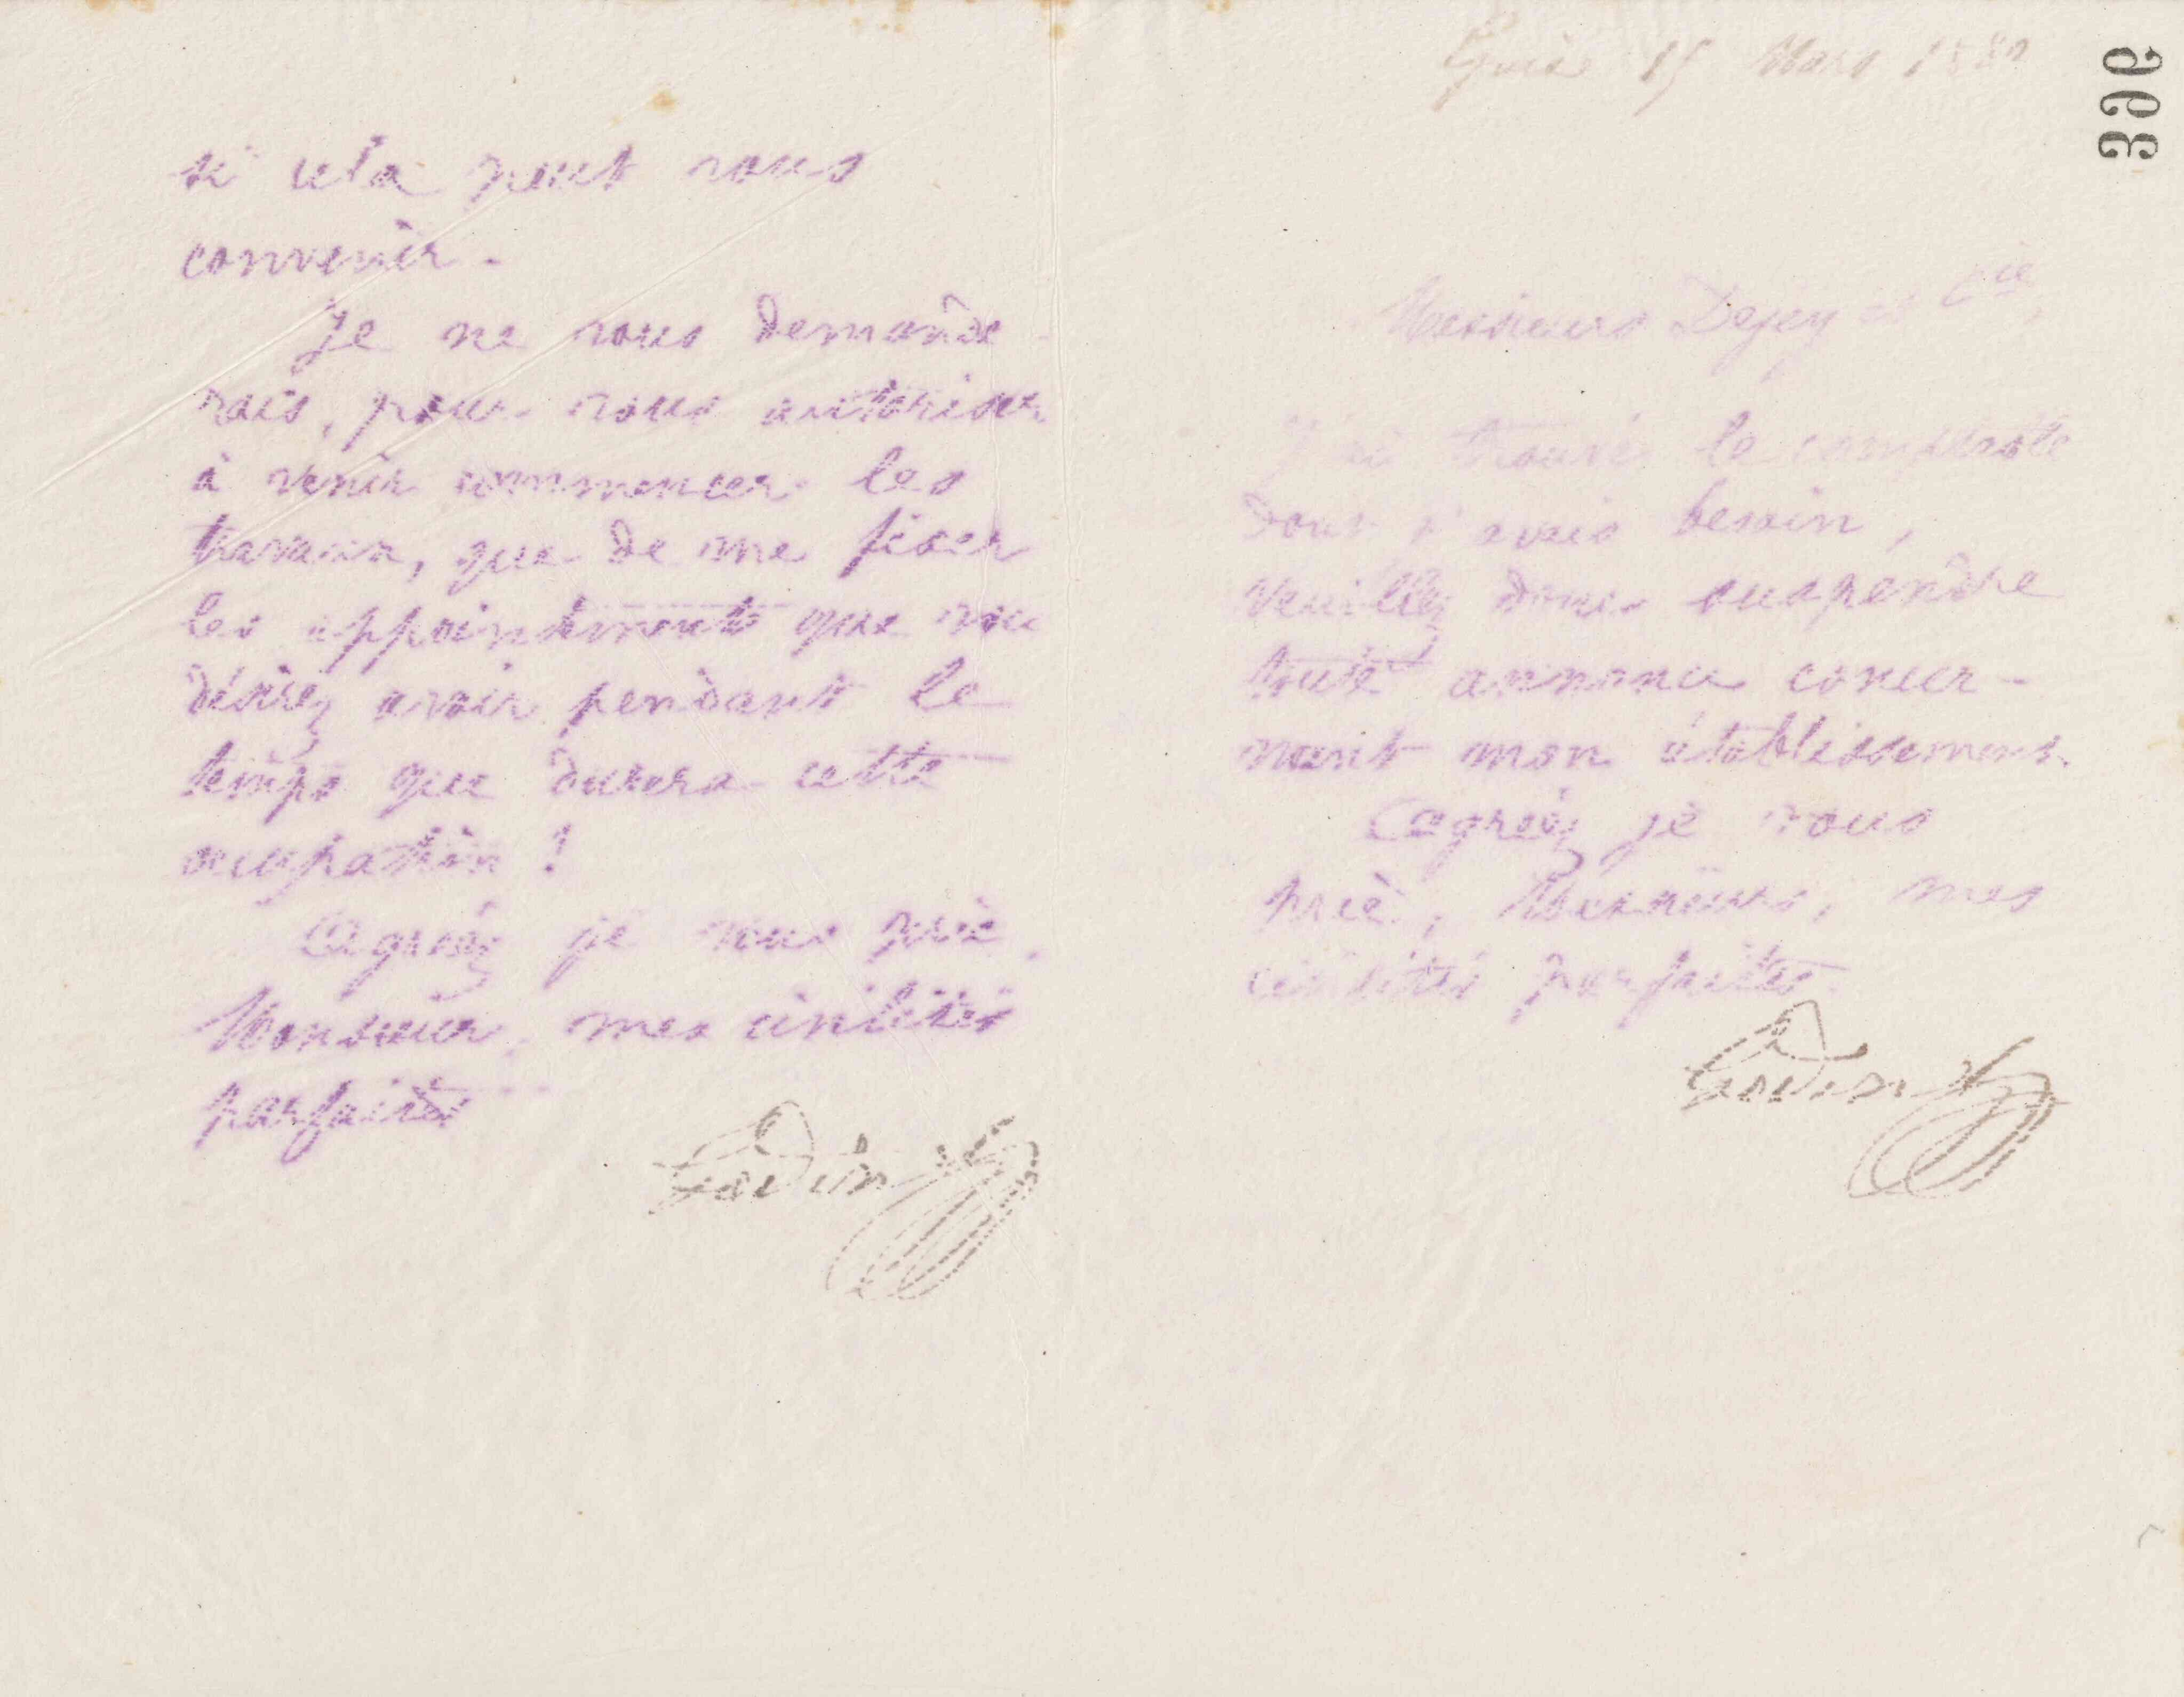 si cela peut vous
convenir.
Je ne vous demande
rais, pour vous autoriser
à venir commencer les
travaux, que de me fixer
les appointements que vou
désirez avoir pendant le
temps que durera cette
occupation !
Agréez je vous prie,
Monsieur, mes civilités
parfaites
Godin
396
Guise 15 Mars 1880
Messieurs Dejey et Cie,
J'ai trouvé le comptable
dont j'avais besoin,
veuillez donc suspendre
toute annonce concer-
nant mon établissement.
Agréez je vous
prie, Messieurs, mes
civilités parfaites.
Godin